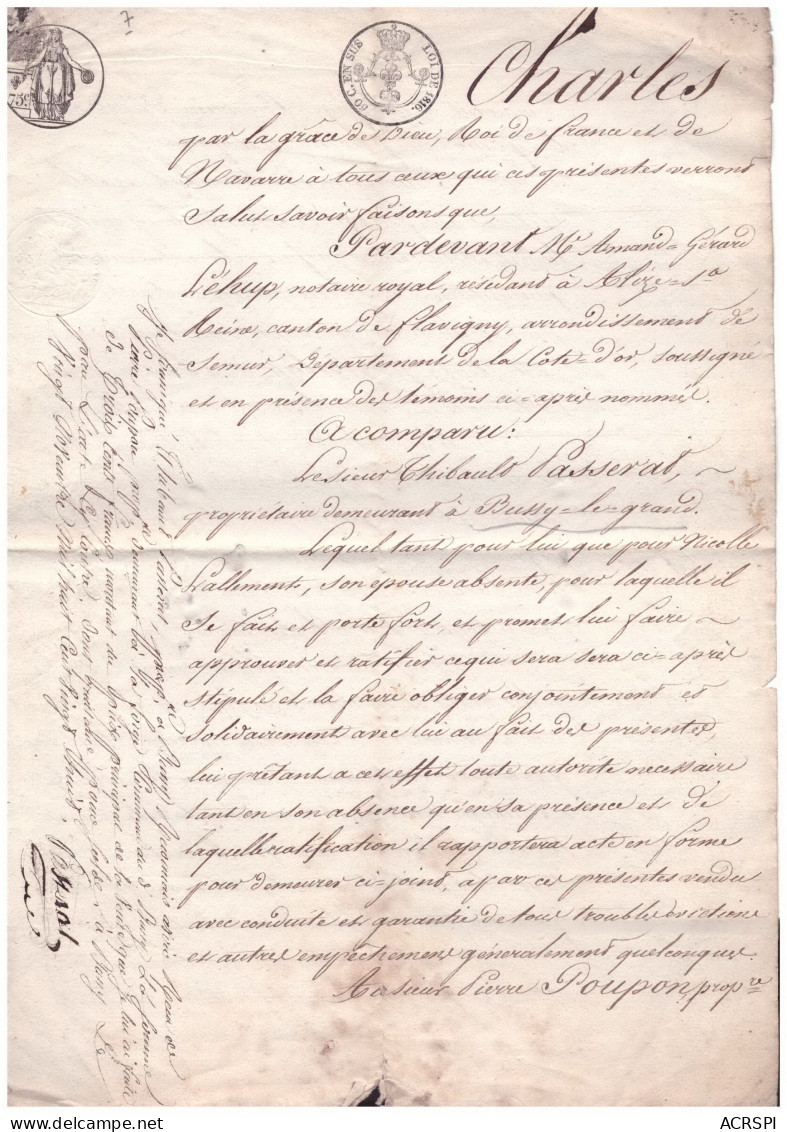 7
75c
50 C. EN SUS LOI DE 1816.
Charles
par la grâce de Dieu, Roi de france et de
Navarre à tous ceux qui ces présentes verront
Salut savoir faisons que,
Pardevant Me Amand=Gérard
Léhup, notaire royal, résidant à Alize=Ste
Reine, canton de flavigny, arrondissement de
Semur, Département de la Cote=d'or, soussigné
et en présence des témoins ci=après nommés.
A comparu:
Le Sieur Thibault Passerat,
propriétaire demeurant à Bussy=le=grand.
Lequel tant pour lui que pour Nicolle
Lallement, son epouse absente, pour laquelle il
se fait et porte fort, et promet lui faire
approuver et ratifier ce qui sera sera ci=après
stipulé et la faire obliger conjointement et
solidairement avec lui au fait des présentes,
lui prêtant a cet effet toute autorité necessaire
tant en son absence qu'en sa présence et de
laquelle ratification il rapportera acte en forme
pour demeurer ci-joint, a par ces présentes vendu
avec conduite et garantie de tous troubles evictions
et autres empêchemens généralement quelconques.
Au sieur Pierre Poupon, propre
Je soussigné Thibaud Passerat propre a Bussy Reconnais avoir Reçu de
Pierre Poupon propre demeurant à la
de Trois Cents francs montant du prix principal de la
pour
Vingt Novembre Mil huit Cent Vingt
Passerat
ACRSPI